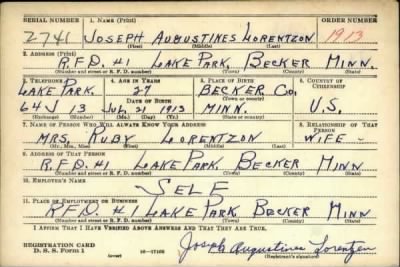 SERIAL NUMBER 1. NAME (Print) ORDER NUMBER
2741 JOSEPH AUGUSTINES LORENTZON 1913
(First) (Middle) (Last)
2. ADDRESS (Print)
R.F.D. #1 LAKE PARK, BECKER MINN.
(Number and street or R. F. D. number) (Town) (County) (State)
3. TELEPHONE 4. AGE IN YEARS 5. PLACE OF BIRTH 6. COUNTRY OF CITIZENSHIP
LAKE PARK, 27 BECKER CO,
DATE OF BIRTH (Town or county)
64J 13 JUL, 21 1913 MINN. U.S.
(Exchange) (Number) (Mo.) (Day) (Yr.) (State or country)
7. NAME OF PERSON WHO WILL ALWAYS KNOW YOUR ADDRESS 8. RELATIONSHIP OF THAT PERSON
MRS. RUBY LORENTZON WIFE
(Mr., Mrs., Miss) (First) (Middle) (Last)
9. ADDRESS OF THAT PERSON
R.F.D. #1 LAKE PARK, BECKER MINN
(Number and street or R. F. D. number) (Town) (County) (State)
10. EMPLOYER'S NAME
SELF
11. PLACE OF EMPLOYMENT OR BUSINESS
R.F.D. #1 LAKE PARK, BECKER MINN
(Number and street or R. F. D. number) (Town) (County) (State)
I AFFIRM THAT I HAVE VERIFIED ABOVE ANSWERS AND THAT THEY ARE TRUE.
REGISTRATION CARD Joseph Augustines Lorentzon
D. S. S. Form 1 (over) (Registrant's signature)